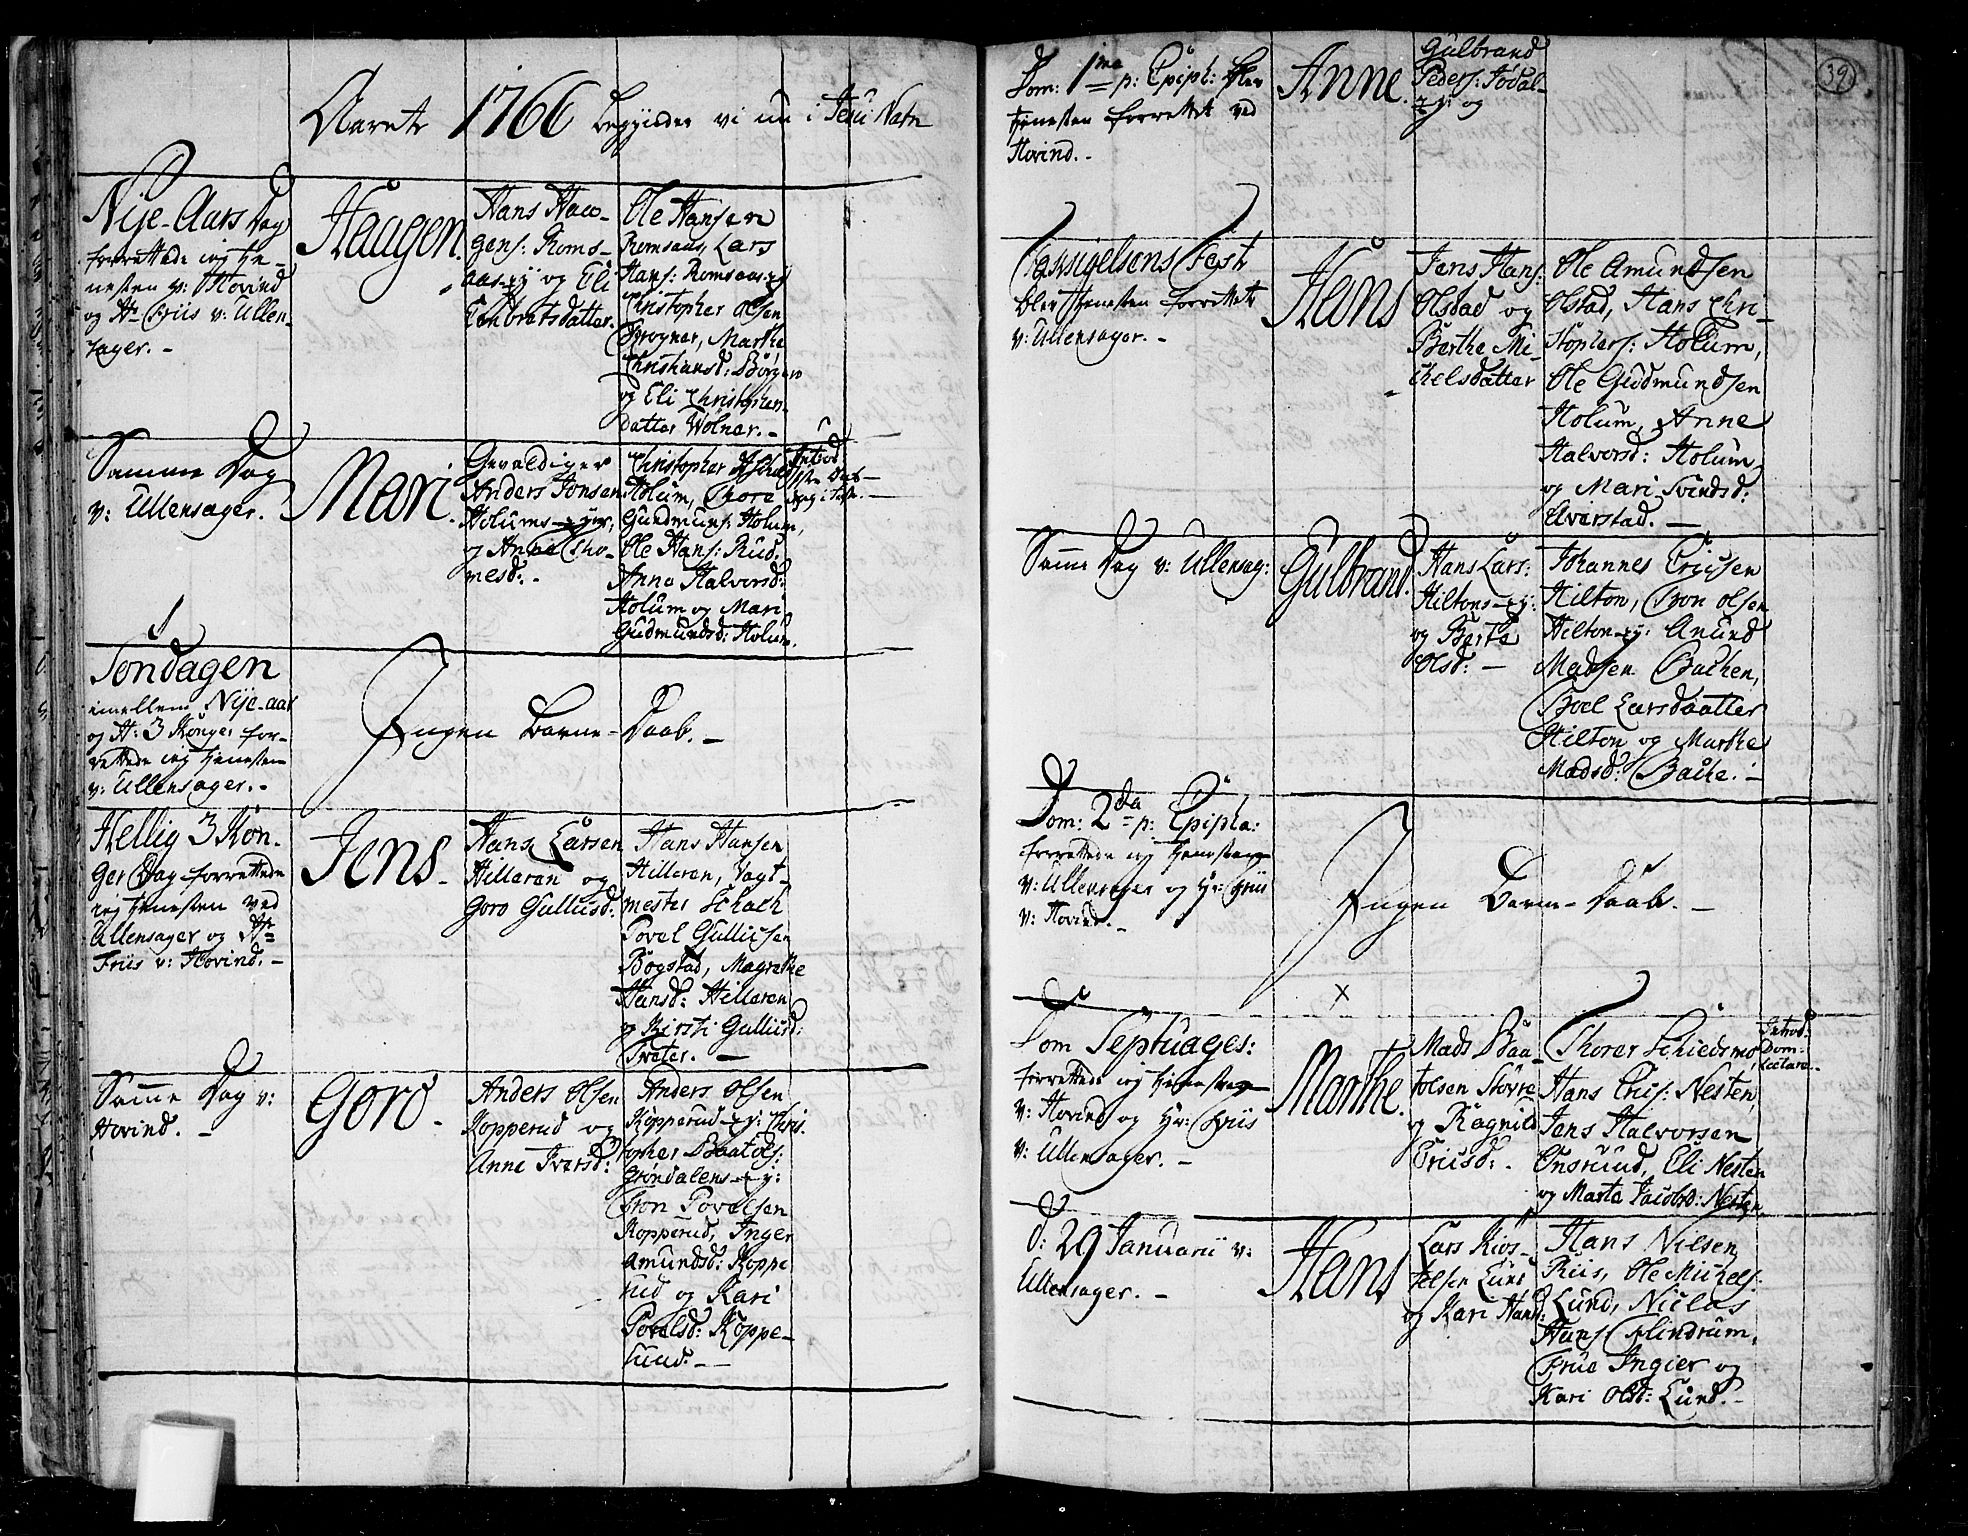 Aaret 1766 begynder vi nu i Jesu Nafn
Nÿe-Aars Dag
forrettede ieg tie-
nesten v: Hovind
og Hr Friis v: Ullen-
sager. -
Haagen.
Hans Haw-
gens: Roms-
aas-ey og Eli
Engbretsdatter.
Ole Hansen
Romsaas, Lars
Hans: Romsaas-ey
Christopher Olsen
Frogner, Marthe
Christiansd: Børgen
og Eli Christophers-
datter Wølner. -
Samme Dag
v: Ullensager.
Mari.
Gevaldiger
Anders Jonsen
Holums-eyer,
og Anne Tho-
mesd: -
Christopher
Holum, Thore
Gundmuns: Holum,
Ole Hans: Rud.
Anne Halvorsd:
Holum og Mari
Gudmundsd: Holum.
Introd:
Søndagen
imellem Nÿe-aar
og H: 3 Konger for-
rettede ieg tienesten
v: Ullensager. -
Ingen Barne-Daab. -
Hellig 3 Kon-
ger Dag forrettede
ieg tienesten ved
Ullensager og Hr
Friis v: Hovind. -
Jens -
Hans Larsen
Hilleren og
Goro Gulliisd:
Hans Hansen
Hilleren, Vagt-
mester Schach
Povel Gulliisen
Bogstad, Magrethe
Hansd: Hilleren
og Kirsti Gulliisd:
Træter. -
Samme Dag v:
Hovind. -
Goro -
Anders Olsen
Kopperud og
Anne Iversd:
Anders Olsen
Kopperud-ey: Chris-
topher Baatols:
Grøndalens-ey:
Tron Povelsen
Kopperud, Inger
Amundsd: Koppe
rud og Kari
Povelsd: Koppe-
rud. -
39
Dom: 1ma p: Epiph: blev
tienesten forrettet ved
Hovind. -
Anne.
Gulbrand
Peders: Jødal-
ey: og
Tacksigelsens Fest
blev tienesten forrettet
v: Ullensager. -
Hans
Jens Hans:
Olstad og
Berthe Mi-
chelsdatter
Ole Amundsen
Olstad, Hans Chri-
stophers: Holum,
Ole Gudmundsen
Holum, Anne
Halvorsd: Holum
og Mari Svendsd:
Elverstad. -
Samme Dag v: Ullensag:
Gulbrand.
Hans Lars:
Hiltons-ey:
og Berte
Olsd: -
Johannes Ericsen
Hilton, Tron Olsen
Hilton-ey: Anund
Madsen Bachen,
Boel Larsdaatter
Hilton og Marthe
Madsd: Backe. -
Dom: 2da p: Epipha:
forrettede ieg tienesten
v: Ullensager og Hr: Friis
v: Hovind. -
Ingen Barne-Daab. -
x
Dom Septuages:
forrettede ieg tienesten
v: Hovind og Hr: Friis
v: Ullensager. -
Marthe.
Mads Baa-
tolsen Støvre
og Ragnild
Ericsd: -
Thorer Schiedsmo
Hans Eris: Nesten,
Jens Halvorsen
Onsruud, Eli Nesten
og Marte Jacobsd: Nesten.
Introd:
Dom:
Lætare. -
d: 29 Januarii v:
Ullensager. -
Hans
Lars Kios-
telsen Lund
og Kari Hansd:
Hans Nilsen
Riis, Ole Michels:
Lund, Niclas
Hans: Flindrum,
Frue Ingier og
Kari Olsd: Lund. -